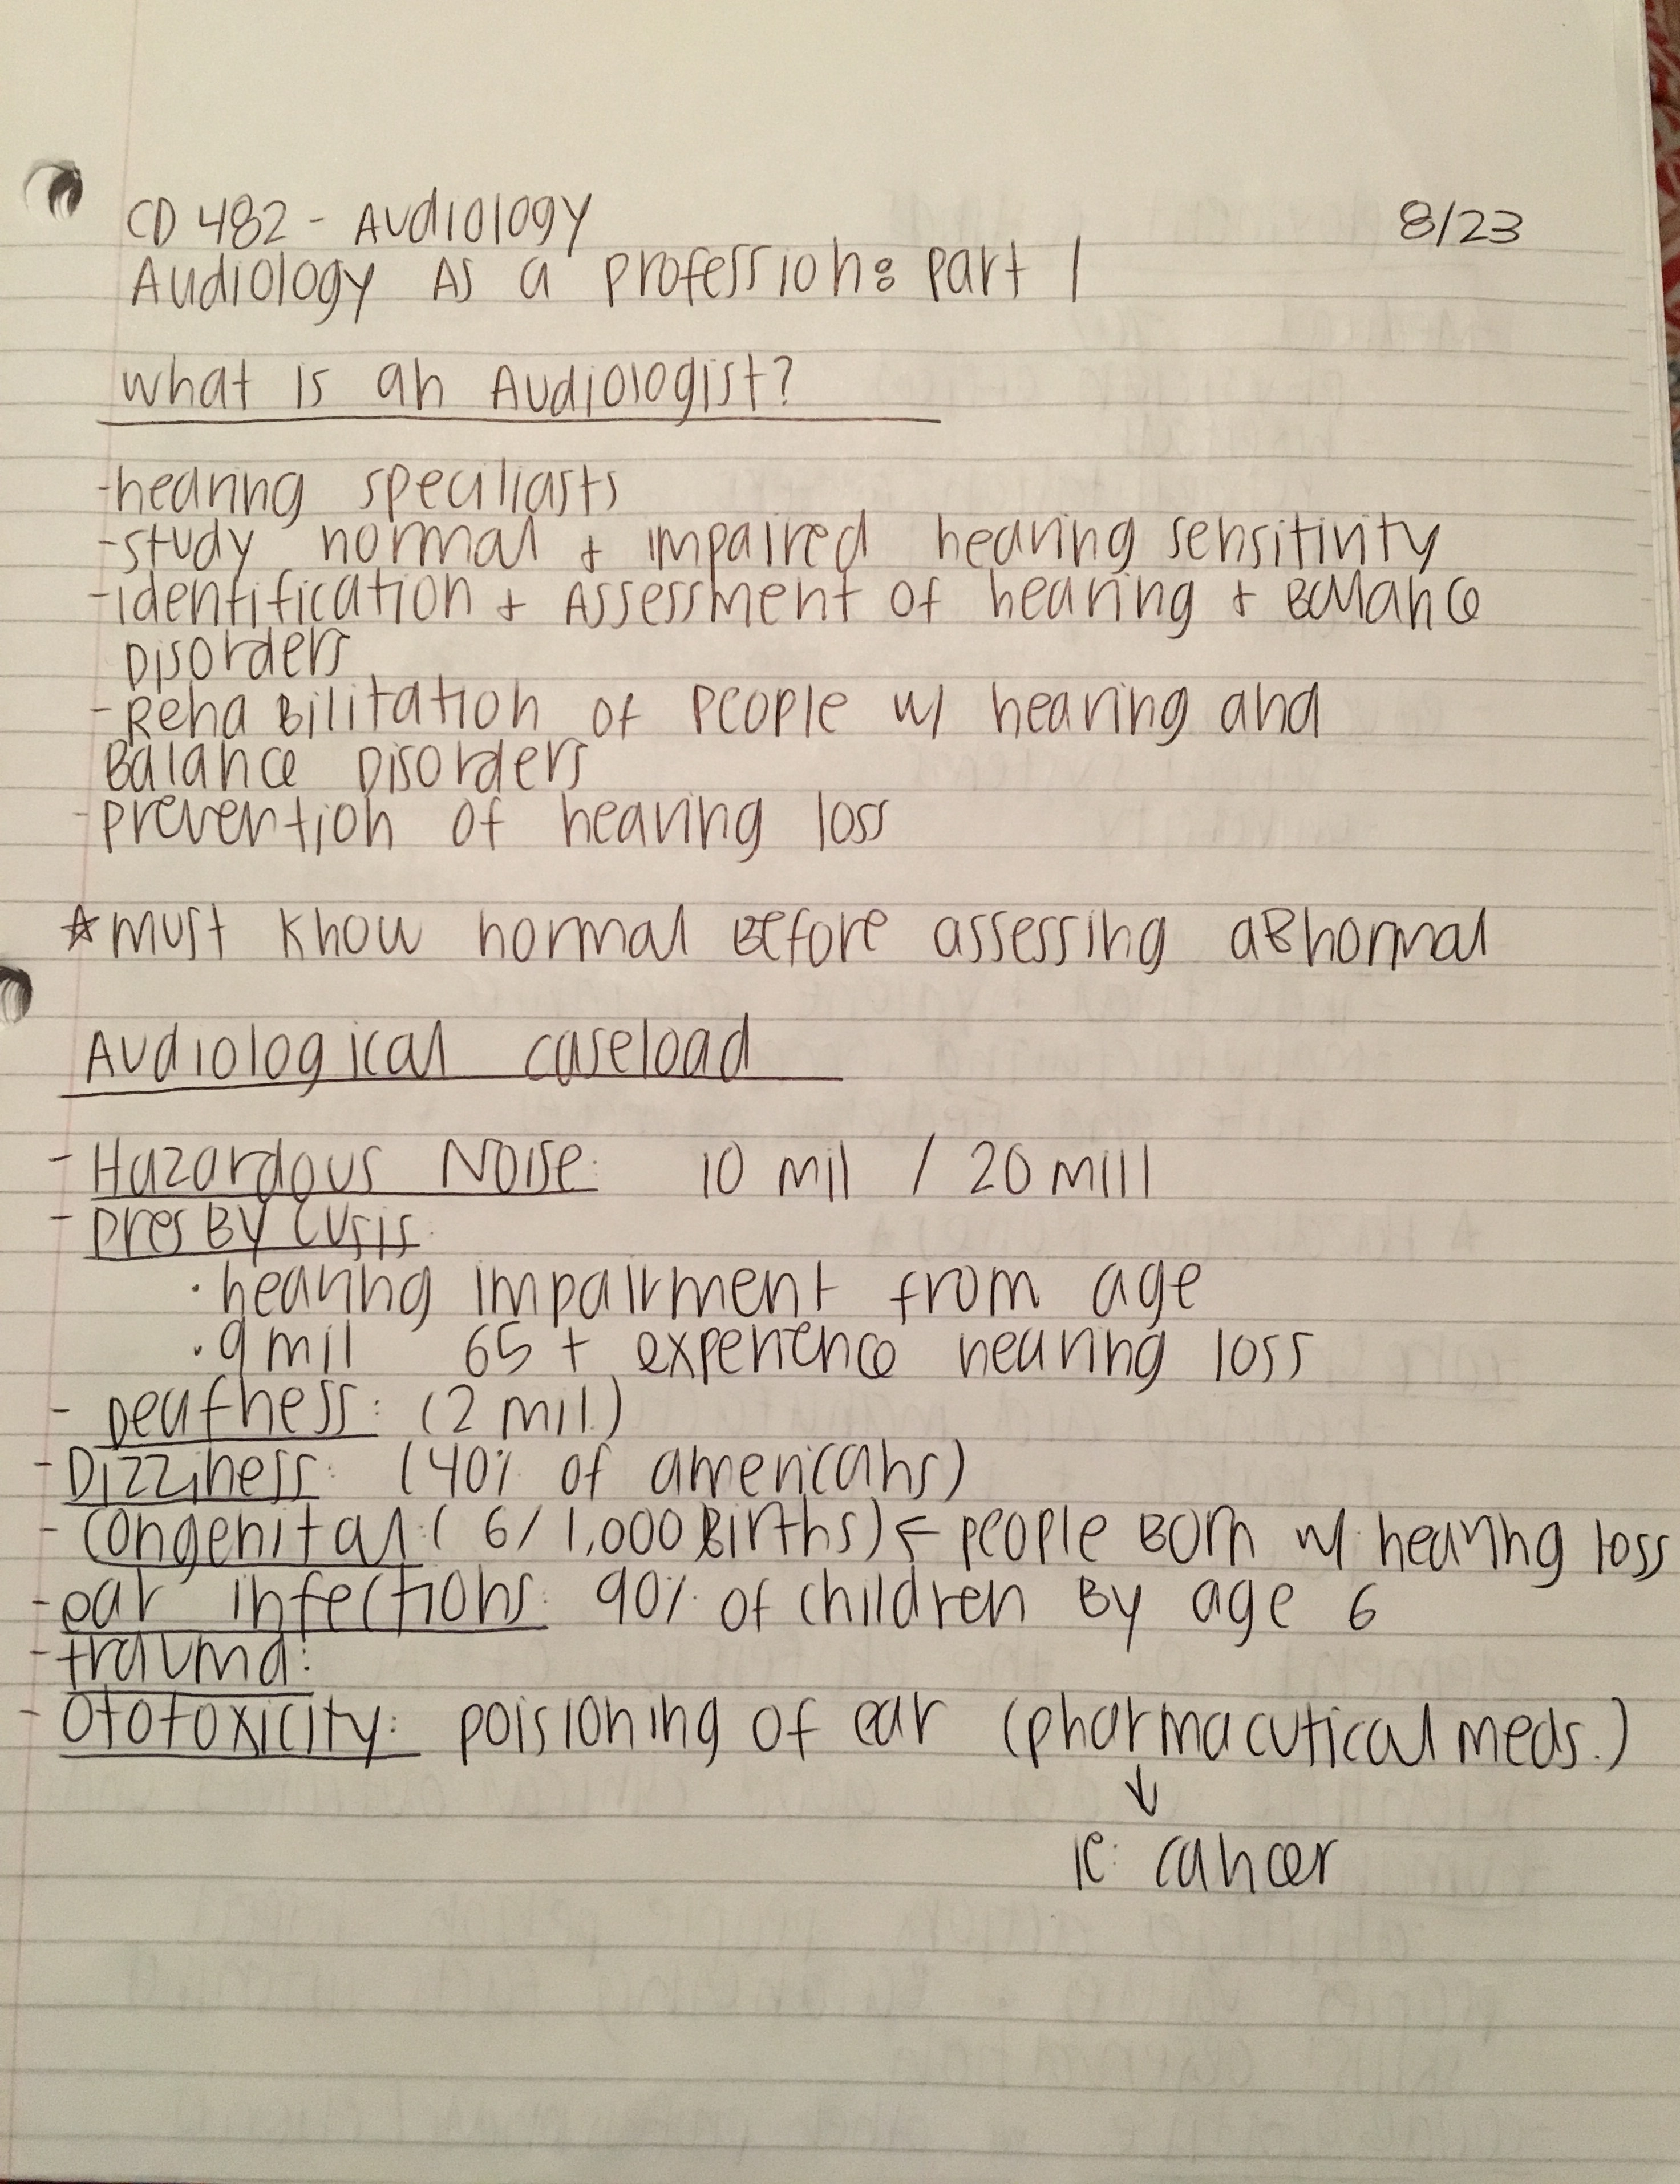 CD 482 - Audiology 8/23
Audiology As a profession: part 1
what is an Audiologist?
-hearing speciliasts
-study normal + impaired hearing sensitivity
-identification + Assessment of hearing + Balance
Disorders
-Rehabilitation of people w/ hearing and
Balance Disorders
-prevention of hearing loss
☆must know normal Before assessing aBnormal
Audiological caseload
- Hazardous Noise: 10 mil / 20 mill
- presBycusis
· hearing impairment from age
· 9 mil 65 + experience hearing loss
- Deafness: (2 mil.)
- Dizziness: (40% of americans)
- congenital: (6/1,000 Births) ← people Born w/ hearing loss
- ear infections: 90% of children By age 6
- trauma:
- Ototoxicity: poisioning of ear (pharmacutical meds.)
↓
ie: cancer